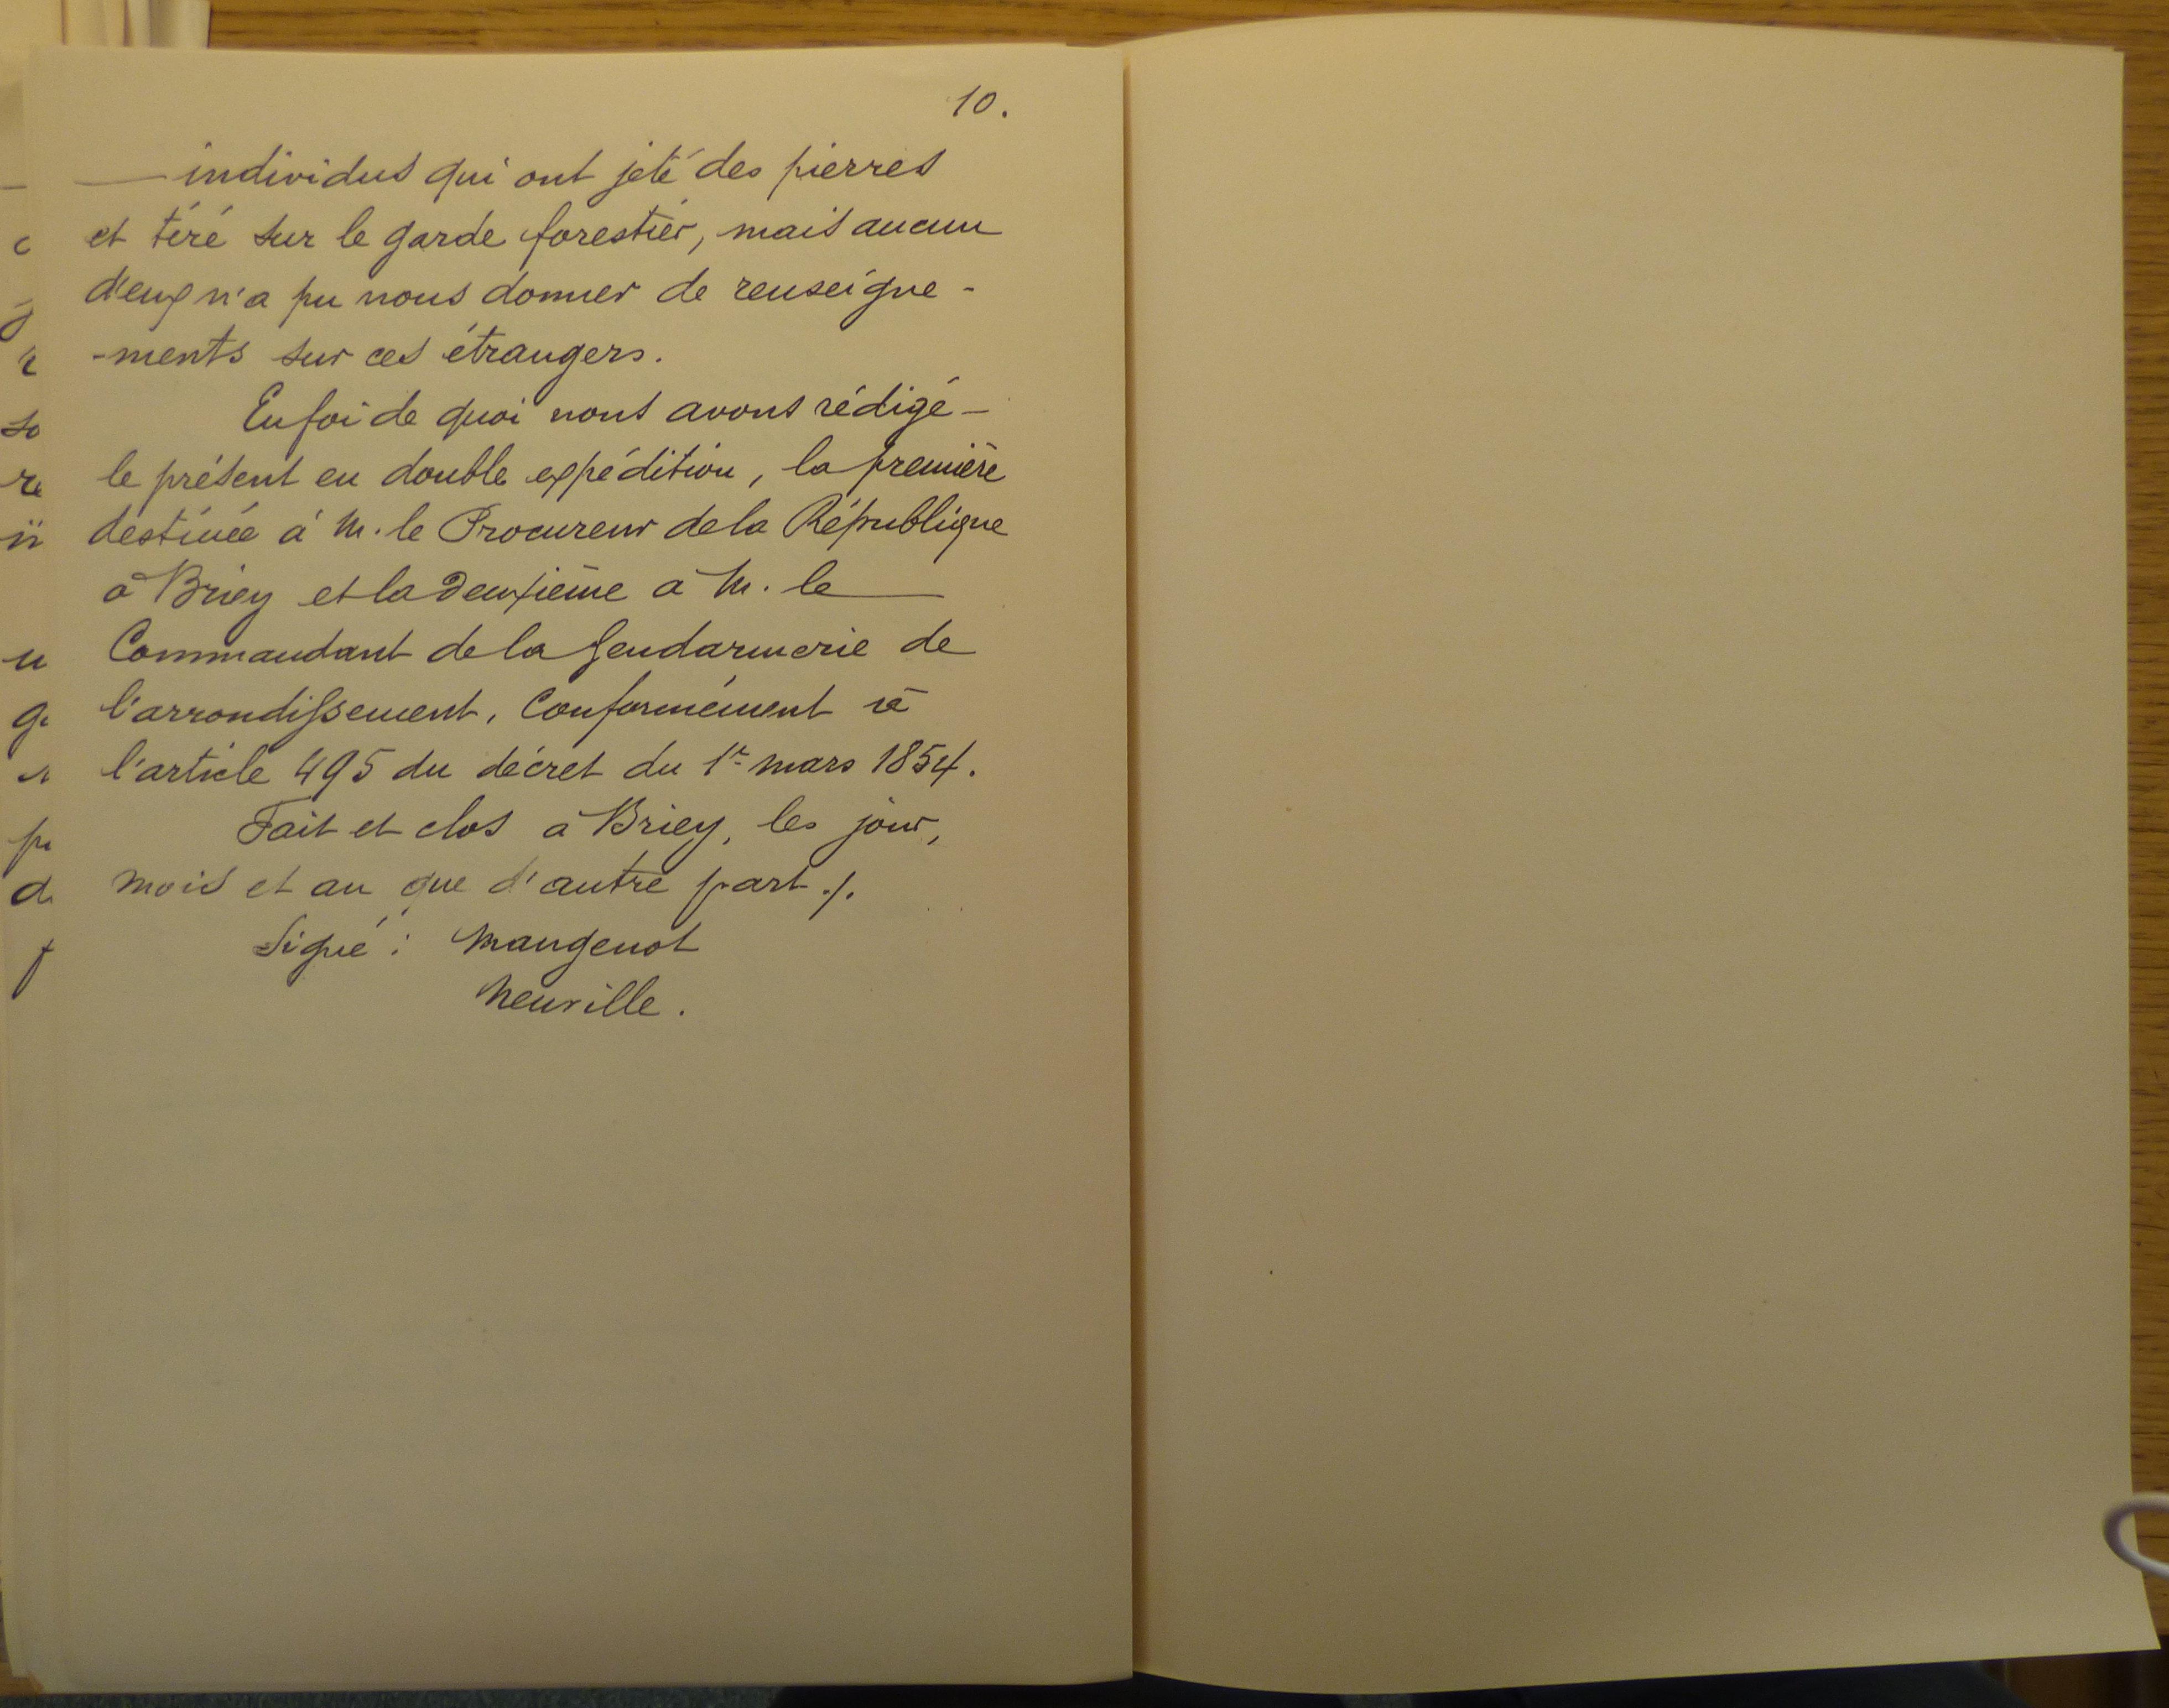 10.
individus qui ont jeté des pierres
et tiré sur le garde forestier, mais aucun
d'eux n'a pu nous donner de renseigne-
-ments sur ces étrangers.
En foi de quoi nous avons rédigé
le présent en double expédition, la première
destinée à M. le Procureur de la République
à Briey et la deuxième à M. le
Commandant de la Gendarmerie de
l'arrondissement, conformément à
l'article 495 du décret du 1er mars 1854.
Fait et clos à Briey, les jour,
mois et an que d'autre part ./.
Signé : Mangenot
Neuville.